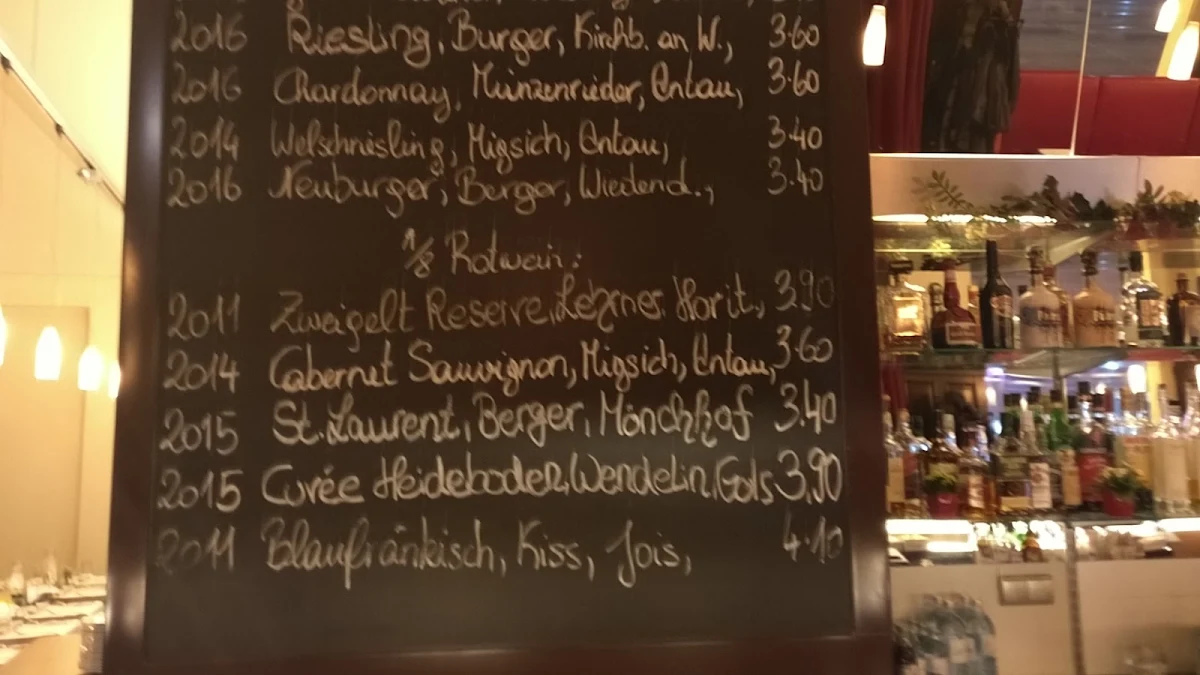 2016 Riesling, Burger, Kirchb. an W., 3.60
2016 Chardonnay, Münzenrieder, Entau, 3.60
2014 Welschriesling, Migsich, Entau, 3.40
2016 Neuburger, Burger, Wiedend., 3.40
1/8 Rotwein:
2011 Zweigelt Reserve, Horit., 3.90
2014 Cabernet Sauvignon, Migsich, Entau, 3.60
2015 St. Laurent, Berger, Mönchhof 3.40
2015 Cuvée Heideboden, Wendelin, Gols 3,90
2011 Blaufränkisch, Kiss, Jois, 4.10